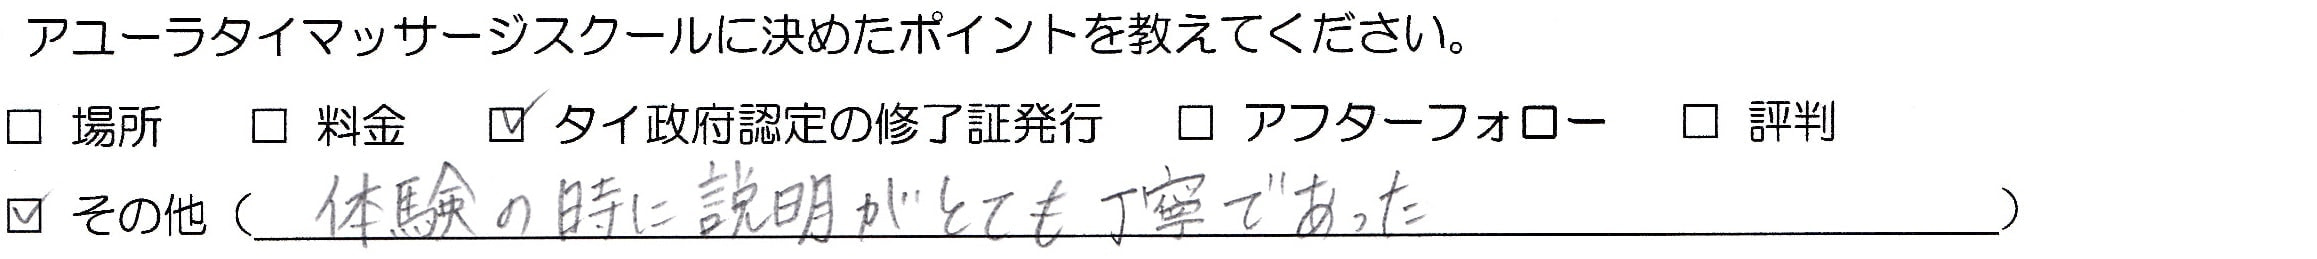 アユーラタイマッサージスクールに決めたポイントを教えてください。
□ 場所 □ 料金 ☑ タイ政府認定の修了証発行 □ アフターフォロー □ 評判
☑ その他（体験の時に説明がとても丁寧であった）